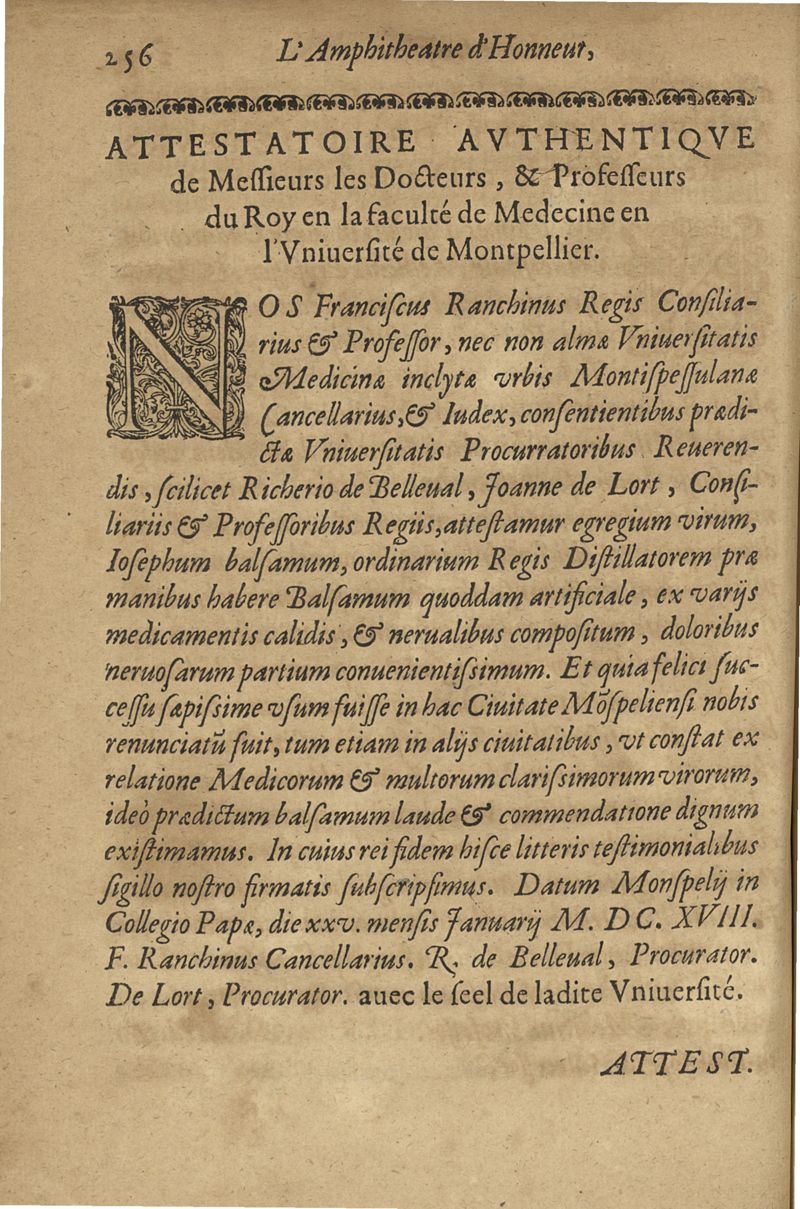 256 L'Amphitheatre d'Honneur,
ATTESTATOIRE AVTHENTIQVE
de Meſſieurs les Docteurs, & Profeſſeurs
du Roy en la faculté de Medecine en
l'Vniuerſité de Montpellier.
NOS Franciſcus Ranchinus Regis Conſilia-
rius & Profeſſor, nec non almæ Vniuerſitatis
Medicinæ inclytæ vrbis Montiſpeſſulanæ
Cancellarius, & Iudex, conſentientibus prædi-
ctæ Vniuerſitatis Procurratoribus Reueren-
dis, ſcilicet Richerio de Belleual, Joanne de Lort, Conſi-
liariis & Profeſſoribus Regiis, atteſtamur egregium virum,
Ioſephum balſamum, ordinarium Regis Diſtillatorem præ
manibus habere Balſamum quoddam artificiale, ex varijs
medicamentis calidis, & nerualibus compoſitum, doloribus
neruoſarum partium conuenientiſsimum. Et quia felici ſuc-
ceſſu ſæpiſsime vſum fuiſſe in hac Ciuitate Mõſpelienſi nobis
renunciatũ fuit, tum etiam in alijs ciuitatibus, vt conſtat ex
relatione Medicorum & multorum clariſsimorum virorum,
ideò prædictum balſamum laude & commendatione dignum
exiſtimamus. In cuius rei fidem hiſce litteris teſtimonialibus
ſigillo noſtro firmatis ſubſcripſimus. Datum Monſpelij in
Collegio Papæ, die xxv. menſis Januarij M. DC. XVIII.
F. Ranchinus Cancellarius. R. de Belleual, Procurator.
De Lort, Procurator. auec le ſeel de ladite Vniuerſité.
ATTEST.